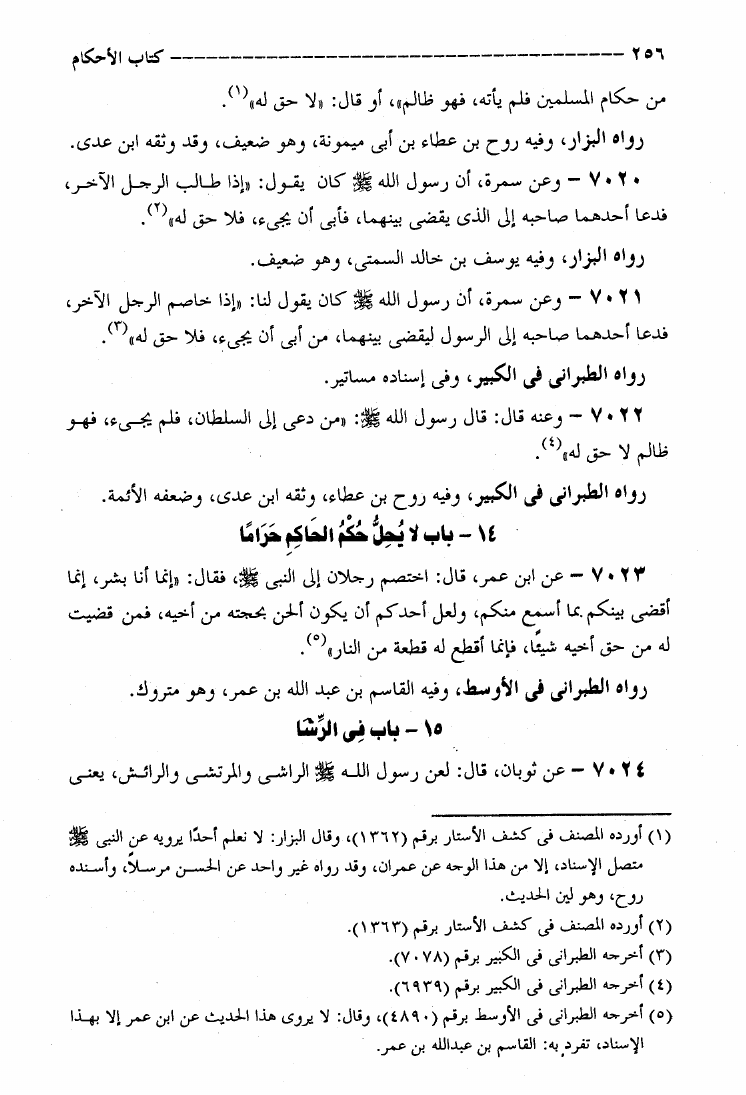 ٢٥٦ ــــــــــــــــــــــــــــــــــــــــــــــــــــ كتاب الأحكام
من حكام المسلمين فلم يأته، فهو ظالم»، أو قال: «لا حق له»(١).
رواه البزار، وفيه روح بن عطاء بن أبى ميمونة، وهو ضعيف، وقد وثقه ابن عدى.
٧٠٢٠ – وعن سمرة، أن رسول الله ﷺ كان يقول: «إذا طالب الرجل الآخر،
فدعا أحدهما صاحبه إلى الذى يقضى بينهما، فأبى أن يجىء، فلا حق له»(٢).
رواه البزار، وفيه يوسف بن خالد السمتى، وهو ضعيف.
٧٠٢١ – وعن سمرة، أن رسول الله ﷺ كان يقول لنا: «إذا خاصم الرجل الآخر،
فدعا أحدهما صاحبه إلى الرسول ليقضى بينهما، من أبى أن يجىء، فلا حق له»(٣).
رواه الطبرانى فى الكبير، وفى إسناده مساتير.
٧٠٢٢ – وعنه قال: قال رسول الله ﷺ: «من دعى إلى السلطان، فلم يجىء، فهو
ظالم لا حق له»(٤).
رواه الطبرانى فى الكبير، وفيه روح بن عطاء، وثقه ابن عدى، وضعفه الأئمة.
١٤ – باب لا يُحِلُّ حُكْمُ الحَاكِمِ حَرَامًا
٧٠٢٣ – عن ابن عمر، قال: اختصم رجلان إلى النبى ﷺ، فقال: «إنما أنا بشر، إنما
أقضى بينكم بما أسمع منكم، ولعل أحدكم أن يكون ألحن بحجته من أخيه، فمن قضيت
له من حق أخيه شيئًا، فإنما أقطع له قطعة من النار»(٥).
رواه الطبرانى فى الأوسط، وفيه القاسم بن عبد الله بن عمر، وهو متروك.
١٥ – باب فِى الرِّشَا
٧٠٢٤ – عن ثوبان، قال: لعن رسول الله ﷺ الراشى والمرتشى والرائش، يعنى
(١) أورده المصنف فى كشف الأستار برقم (١٣٦٢)، وقال البزار: لا نعلم أحدًا يرويه عن النبى ﷺ
متصل الإسناد، إلا من هذا الوجه عن عمران، وقد رواه غير واحد عن الحسن مرسلاً، وأسنده
روح، وهو لين الحديث.
(٢) أورده المصنف فى كشف الأستار برقم (١٣٦٣).
(٣) أخرجه الطبرانى فى الكبير برقم (٧٠٧٨).
(٤) أخرجه الطبرانى فى الكبير برقم (٦٩٣٩).
(٥) أخرجه الطبرانى فى الأوسط برقم (٤٨٩٠)، وقال: لا يروى هذا الحديث عن ابن عمر إلا بهذا
الإسناد، تفرد به: القاسم بن عبدالله بن عمر.